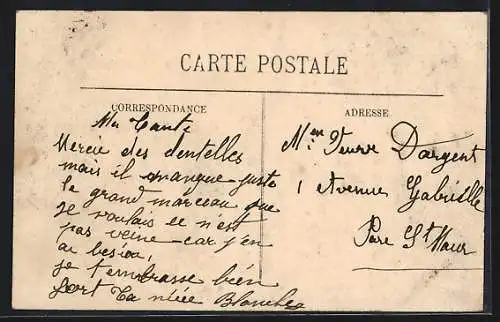 CARTE POSTALE
CORRESPONDANCE
Ma Tante
Mercie des dentelles
mais il manque juste
le grand marceau que
je voulais ce n'est
pas veine car j'en
ai besion,
je t'embrasse bien
fort Ta nièce Blanche
ADRESSE
Veuve Dargent
1 Avenue Gabrielle
Parc St Maur